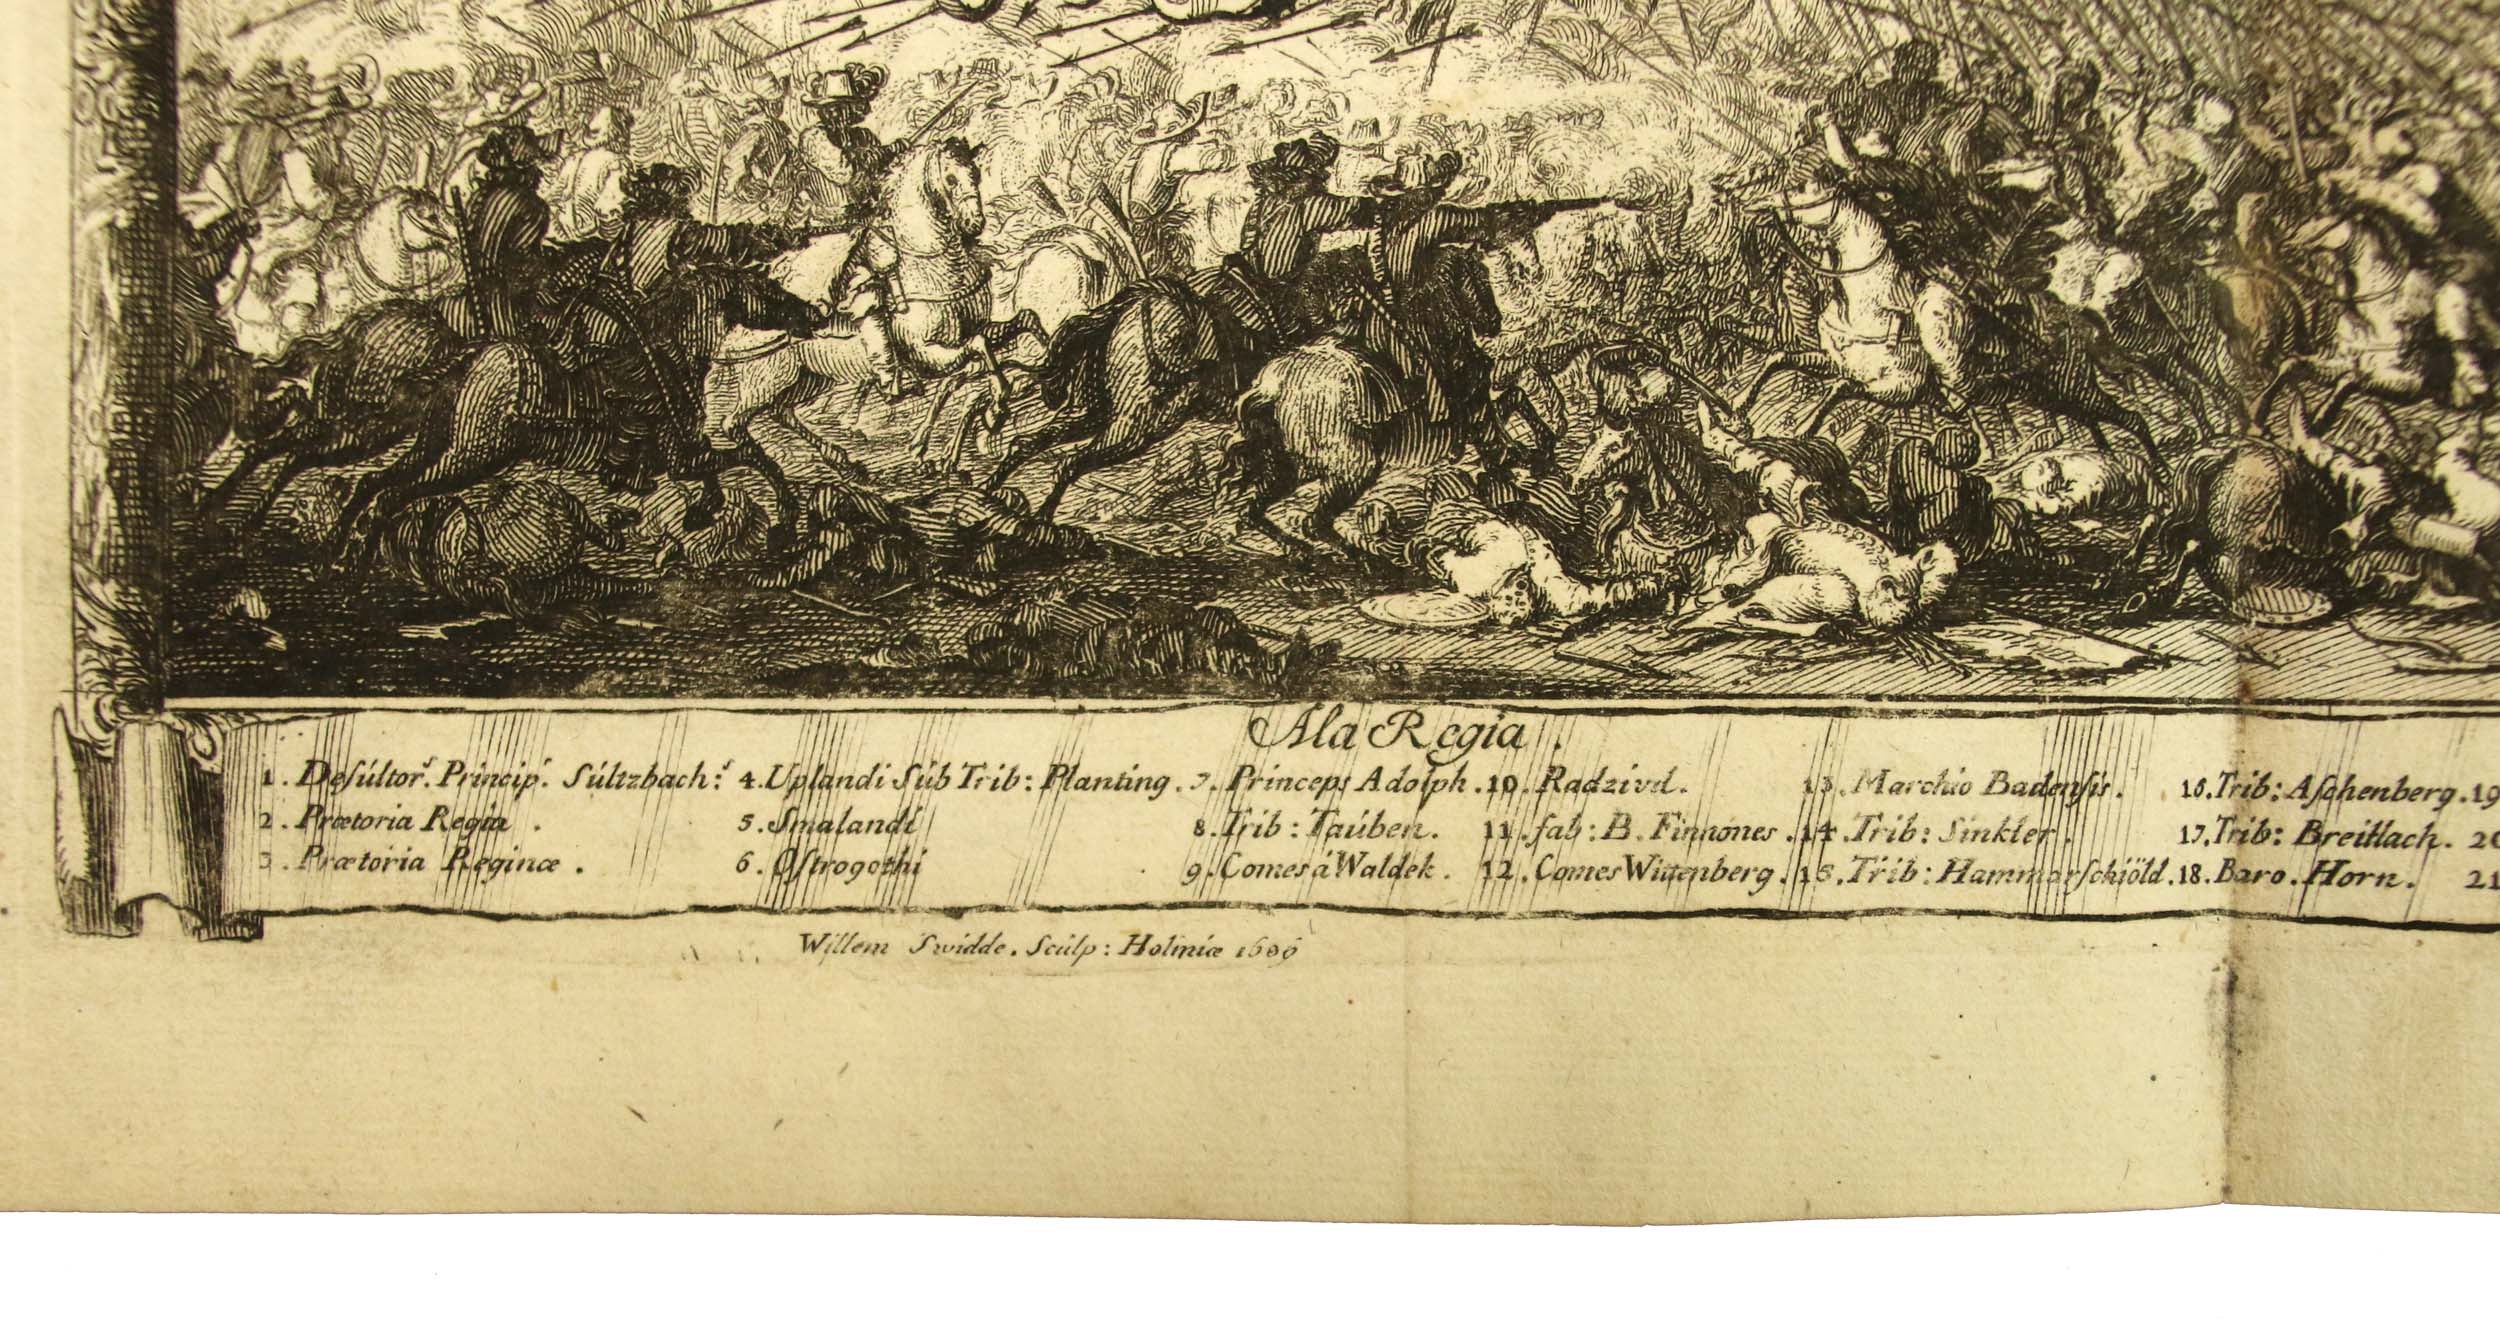 Ala Regia.
1. Deſúltorˢ. Principˢ. Súltzbach:ˢ 4. Uplandi Súb Trib: Planting. 7. Princeps Adolph. 10. Radzivil. 13. Marchio Badenſis. 16. Trib: Aſchenberg. 19
2. Prætoria Regia. 5. Smalandi 8. Trib: Taúben. 11. fab: B. Finnones. 14. Trib: Sinkler. 17. Trib: Breitlach. 20
3. Prætoria Reginæ. 6. Oſtrogothi 9. Comes á Waldek. 12. Comes Wittenberg. 15. Trib: Hammarſchiöld. 18. Baro. Horn. 21
Willem Swidde. Sculp: Holmiæ 1686